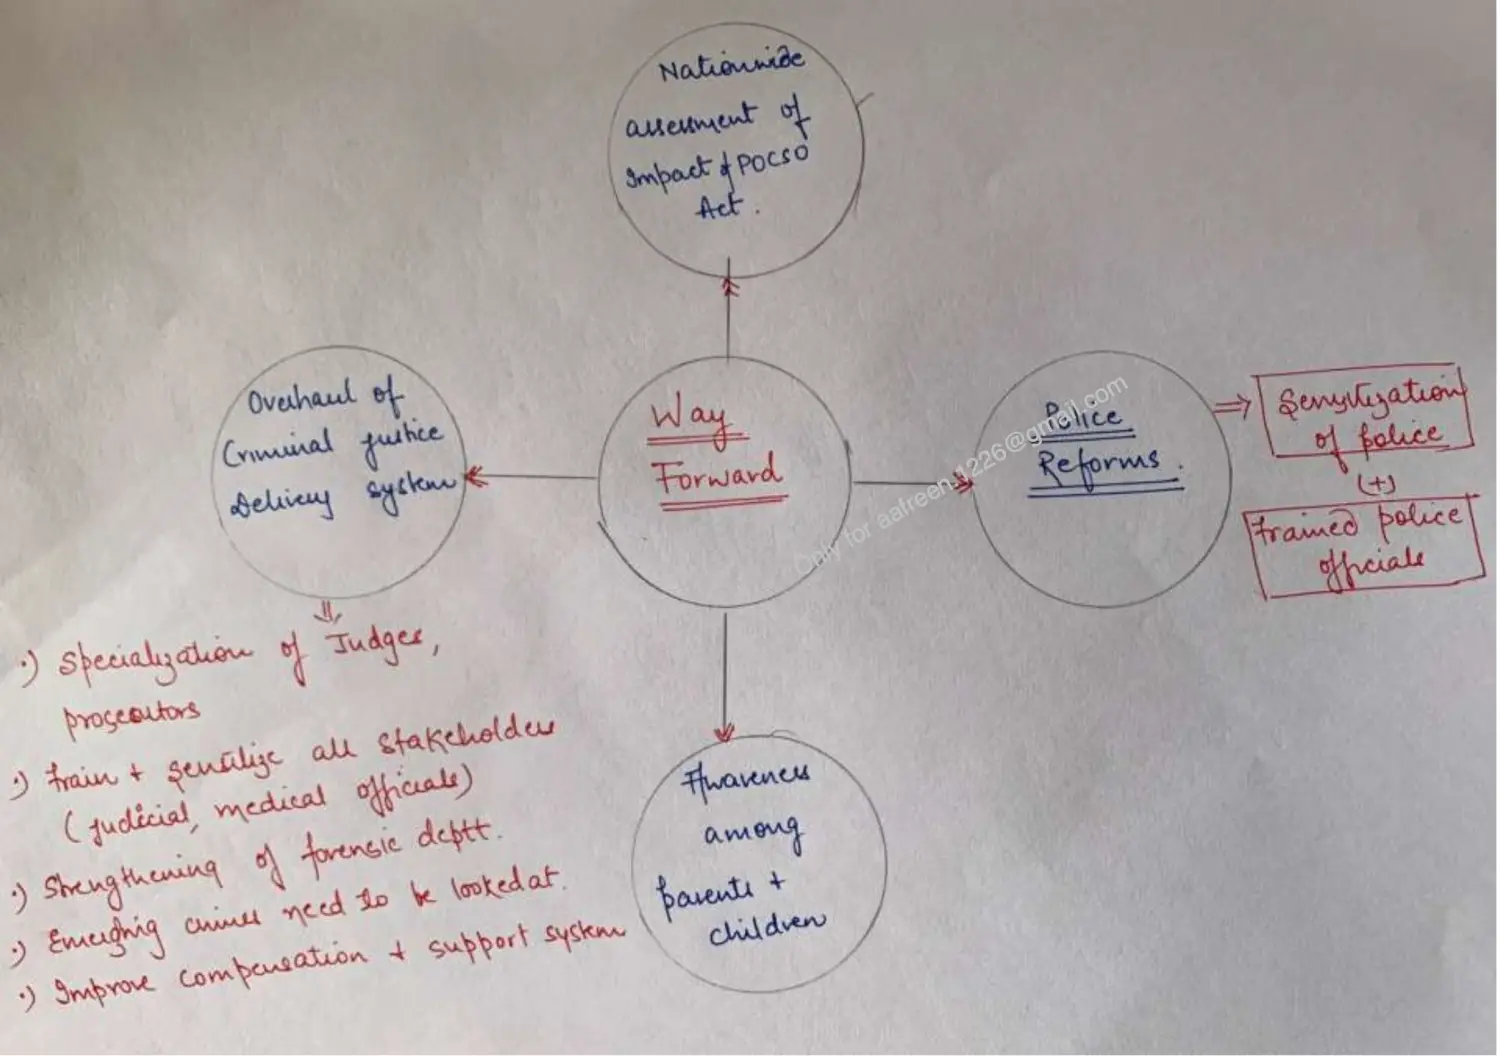 Nationwide
assessment of
Impact of POCSO
Act.
Overhaul of
Criminal justice
Delivery system
Way
Forward
Police
Reforms.
⇒ Sensitization
of police
(+)
trained police
officials
·) Specialization of Judges,
prosecutors
·) train + sensitize all stakeholders
(judicial, medical officials)
·) Strengthening of forensic deptt.
·) Emerging crimes need to be looked at.
·) Improve compensation + support system
Awareness
among
parents +
children
Only for aafreen.1226@gmail.com